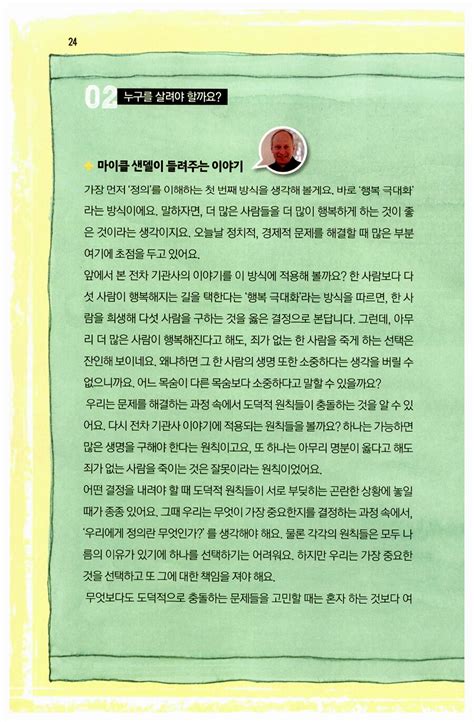 24
02 누구를 살려야 할까요?
마이클 샌델이 들려주는 이야기
가장 먼저 '정의'를 이해하는 첫 번째 방식을 생각해 볼게요. 바로 '행복 극대화'
라는 방식이에요. 말하자면, 더 많은 사람들을 더 많이 행복하게 하는 것이 좋
은 것이라는 생각이지요. 오늘날 정치적, 경제적 문제를 해결할 때 많은 부분
여기에 초점을 두고 있어요.
앞에서 본 전차 기관사의 이야기를 이 방식에 적용해 볼까요? 한 사람보다 다
섯 사람이 행복해지는 길을 택한다는 '행복 극대화'라는 방식을 따르면, 한 사
람을 희생해 다섯 사람을 구하는 것을 옳은 결정으로 본답니다. 그런데, 아무
리 더 많은 사람이 행복해진다고 해도, 죄가 없는 한 사람을 죽게 하는 선택은
잔인해 보이네요. 왜냐하면 그 한 사람의 생명 또한 소중하다는 생각을 버릴 수
없으니까요. 어느 목숨이 다른 목숨보다 소중하다고 말할 수 있을까요?
우리는 문제를 해결하는 과정 속에서 도덕적 원칙들이 충돌하는 것을 알 수 있
어요. 다시 전차 기관사 이야기에 적용되는 원칙들을 볼까요? 하나는 가능하면
많은 생명을 구해야 한다는 원칙이고요, 또 하나는 아무리 명분이 옳다고 해도
죄가 없는 사람을 죽이는 것은 잘못이라는 원칙이었어요.
어떤 결정을 내려야 할 때 도덕적 원칙들이 서로 부딪히는 곤란한 상황에 놓일
때가 종종 있어요. 그때 우리는 무엇이 가장 중요한지를 결정하는 과정 속에서,
'우리에게 정의란 무엇인가?' 를 생각해야 해요. 물론 각각의 원칙들은 모두 나
름의 이유가 있기에 하나를 선택하기는 어려워요. 하지만 우리는 가장 중요한
것을 선택하고 또 그에 대한 책임을 져야 해요.
무엇보다도 도덕적으로 충돌하는 문제들을 고민할 때는 혼자 하는 것보다 여